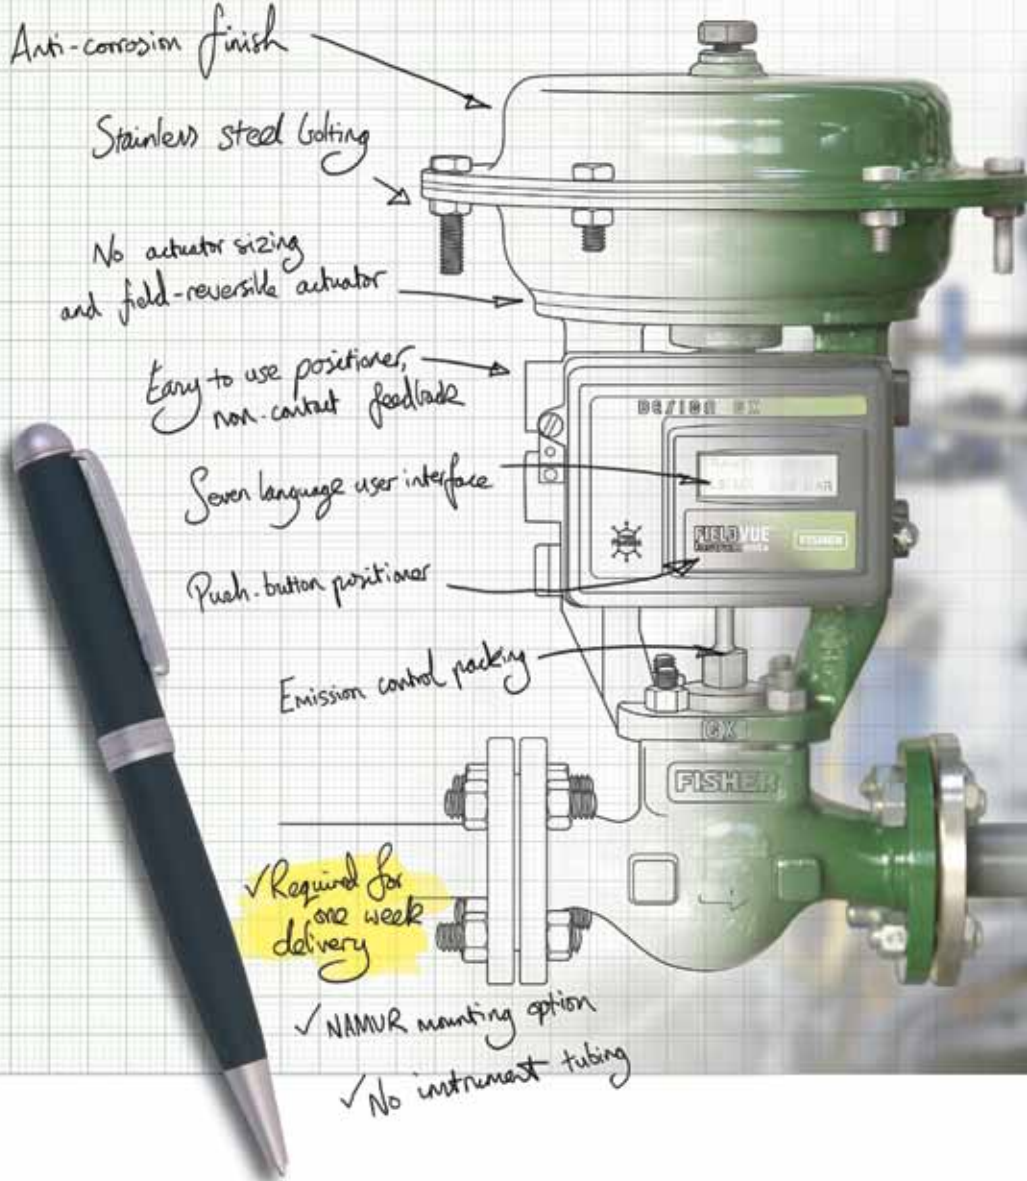 Anti-corrosion finish
Stainless steel bolting
No actuator sizing
and field-reversible actuator
Easy to use positioner,
non-contact feedback
DESIGN GX
Seven language user interface
FIELDVUE
instruments
FISHER
Push-button positioner
Emission control packing
GX
FISHER
✓ Required for
one week
delivery
✓ NAMUR mounting option
✓ No instrument tubing